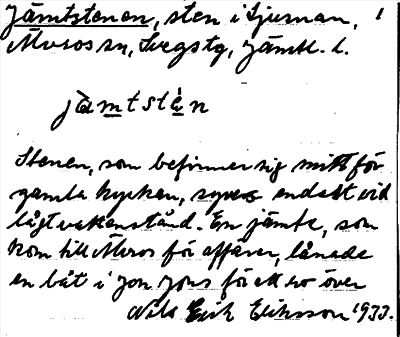 Jämtstenen, sten i Ljusnan, 1
Älvros sn, Svegs tg, Jämtl. l.
jàmtstén
Stenen, som befinner sig mitt för
gamla kyrkan, synes endast vid
lågt vattenstånd. En jämte, som
kom till Älvros för affärer, lånade
en båt i Jon Jons för att ro över
Nils Erik Eriksson 1933.